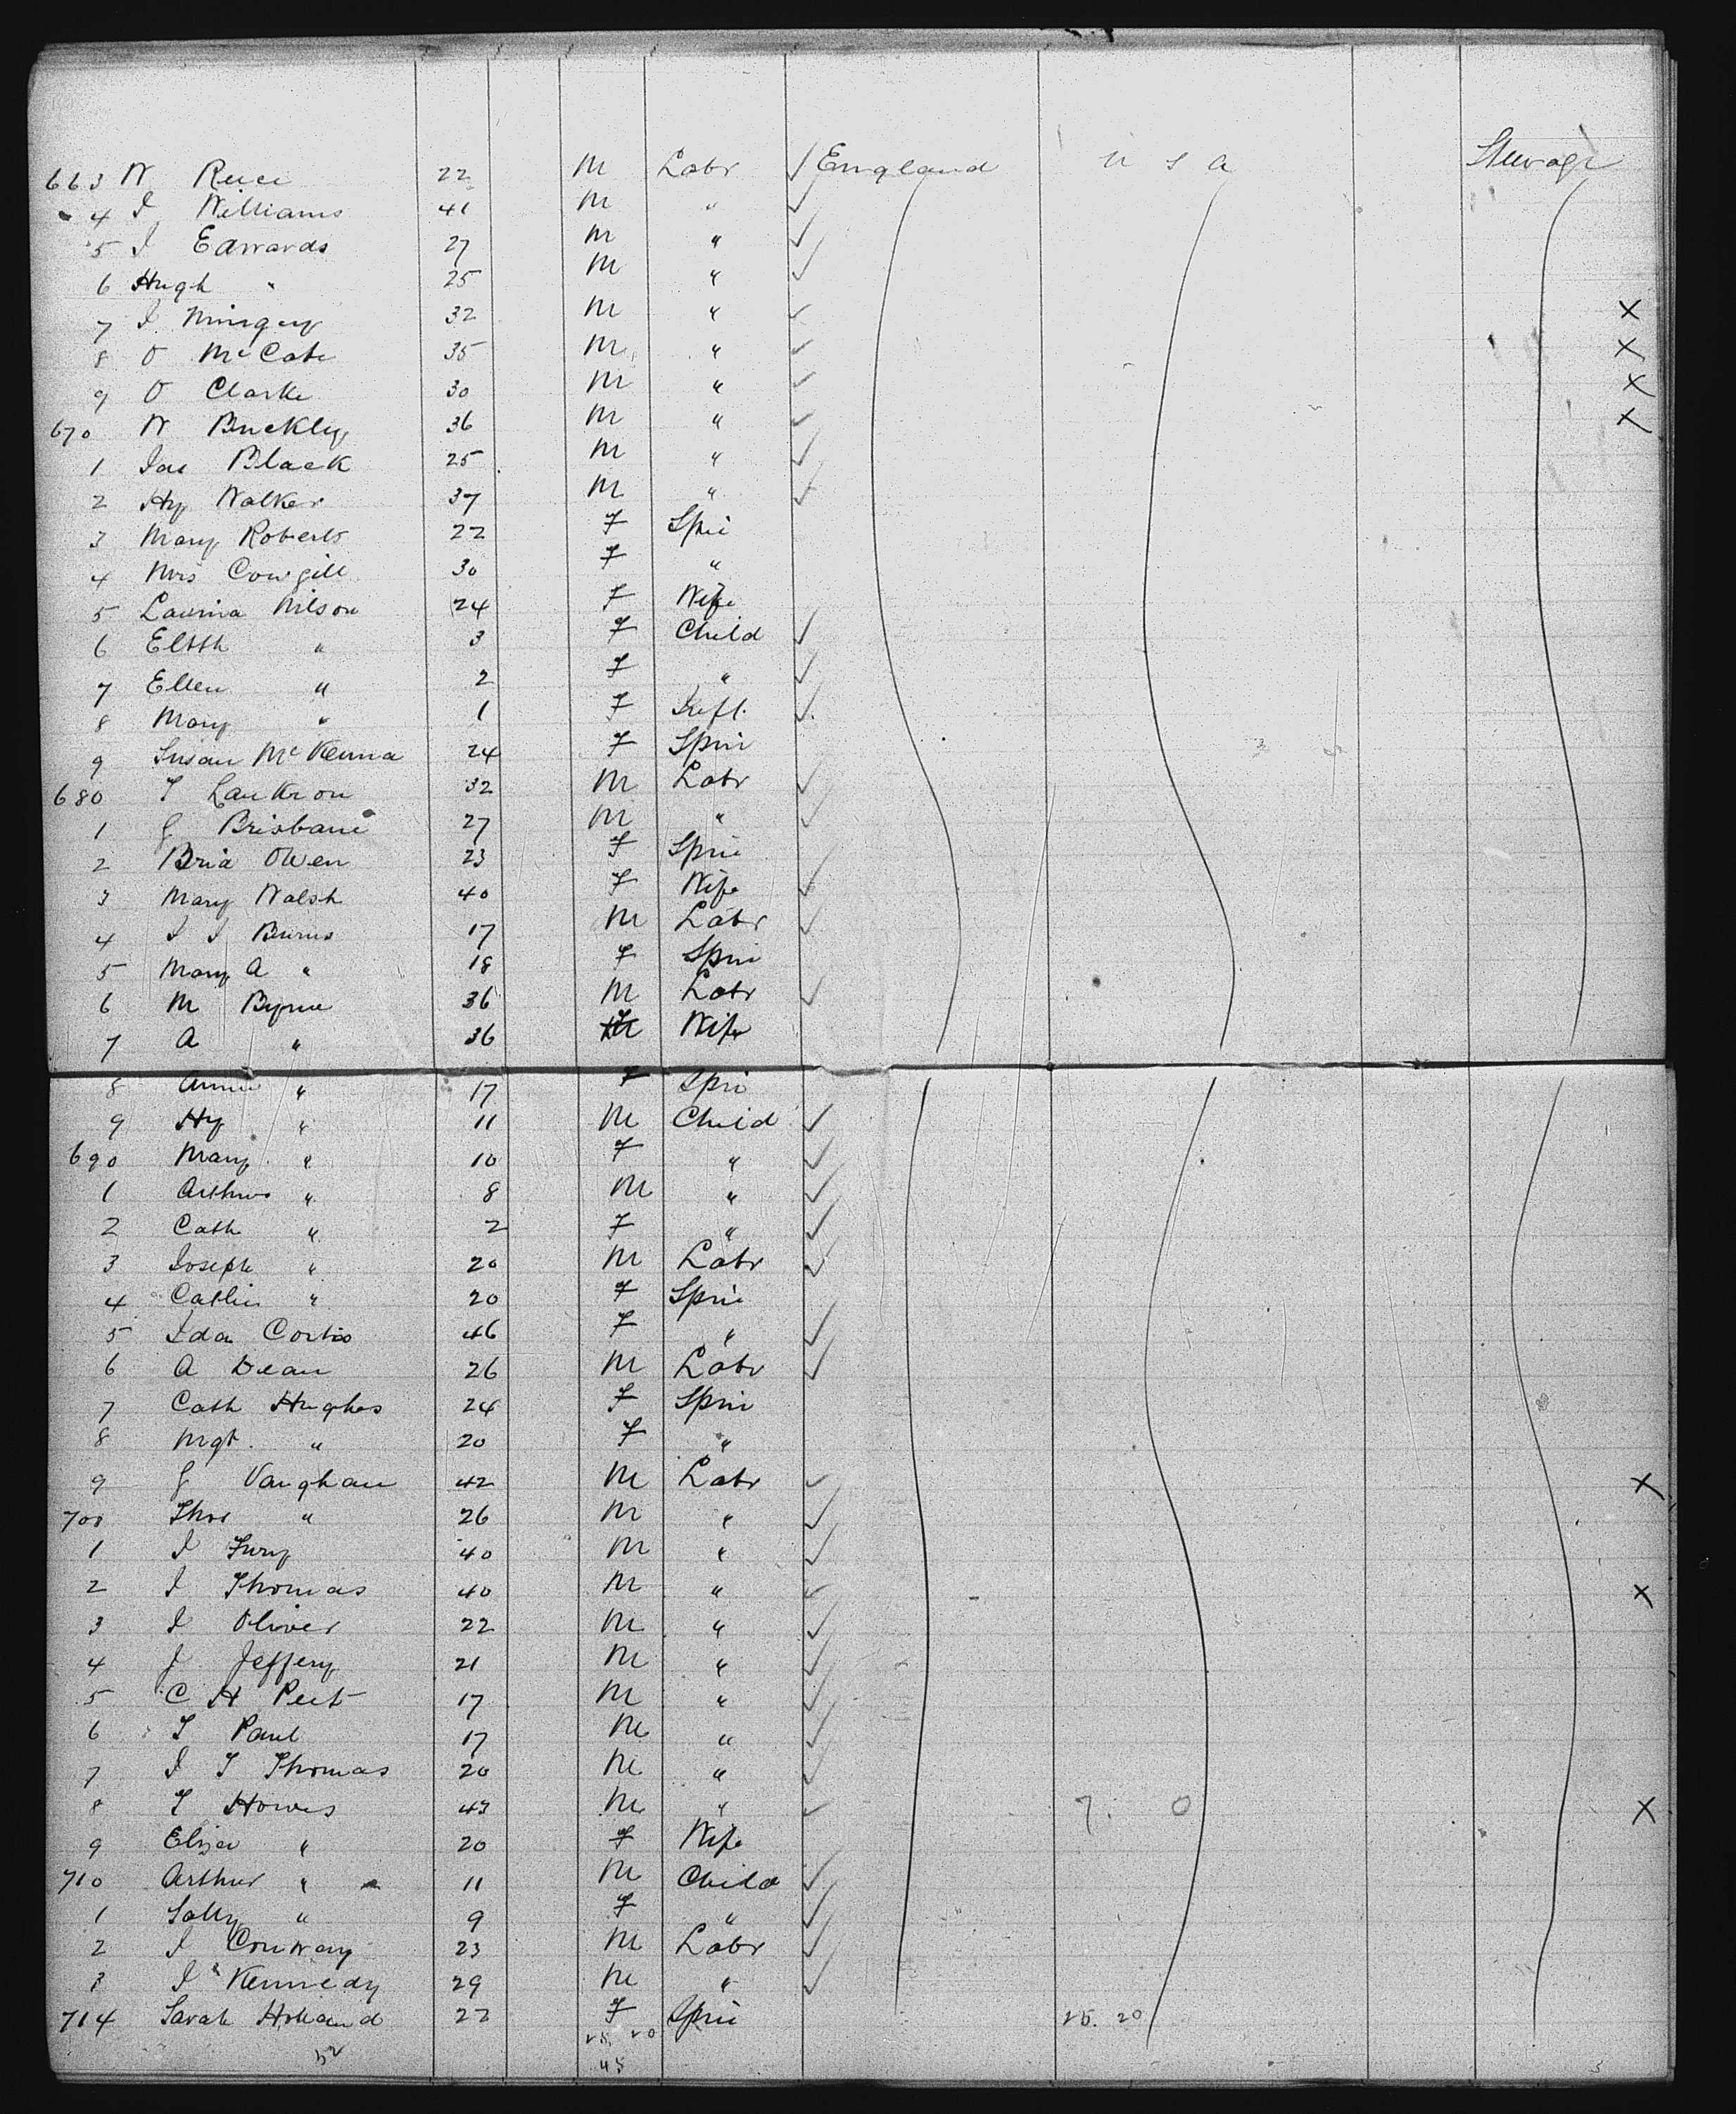 663 W Reece 22 M Labr ✓ England U S A Steerage
4 J Williams 41 M " ✓
5 J Edwards 27 M " ✓
6 Hugh " 25 M " ✓
7 J. 32 M " ✓ X
8 O McCabe 35 M " ✓ X
9 O Clarke 30 M " ✓ X
670 W Buckley 36 M " ✓ X
1 Jas Black 25 M " ✓
2 Hy Walker 37 M " ✓
3 Mary Roberts 22 F Spin
4 Mrs Cowgill 30 F "
5 Lavinia Wilson 24 F Wife
6 Elsth " 3 F Child ✓
7 Ellen " 2 F " ✓
8 Mary " 1 F Inft. ✓
9 Susan McKenna 24 F Spin
680 T 32 M Labr ✓
1 G Brisbane 27 M " ✓
2 Owen 23 F Spin ✓
3 Mary Walsh 40 F Wife ✓
4 J J Burns 17 M Labr ✓
5 Mary A " 18 F Spin
6 M Byrne 36 M Labr ✓
7 A " 36 F Wife
8 Annie " 17 F Spin
9 Hy " 11 M Child ✓
690 Mary " 10 F " ✓
1 Arthur " 8 M " ✓
2 Cath " 2 F " ✓
3 Joseph " 20 M Labr ✓
4 " 20 F Spin
5 Ida 46 F " ✓
6 A Dean 26 M Labr ✓
7 Cath Hughes 24 F Spin
8 Mgt. " 20 F "
9 G Vaughan 42 M Labr ✓ X
700 Thos " 26 M " ✓
1 J Fury 40 M " ✓
2 J Thomas 40 M " ✓ X
3 J Oliver 22 M " ✓
4 J Jeffery 21 M " ✓
5 C H Peet 17 M " ✓
6 T Paul 17 M " ✓
7 J T Thomas 20 M " ✓
8 T Howes 43 M " ✓ 7. 0 X
9 Eliza " 20 F Wife
710 Arthur " 11 M Child ✓
1 Sally " 9 F " ✓
2 J Conway 23 M Labr ✓
3 J Kennedy 29 M " ✓
714 Sarah Holland 22 F Spin 25. 20
52 45